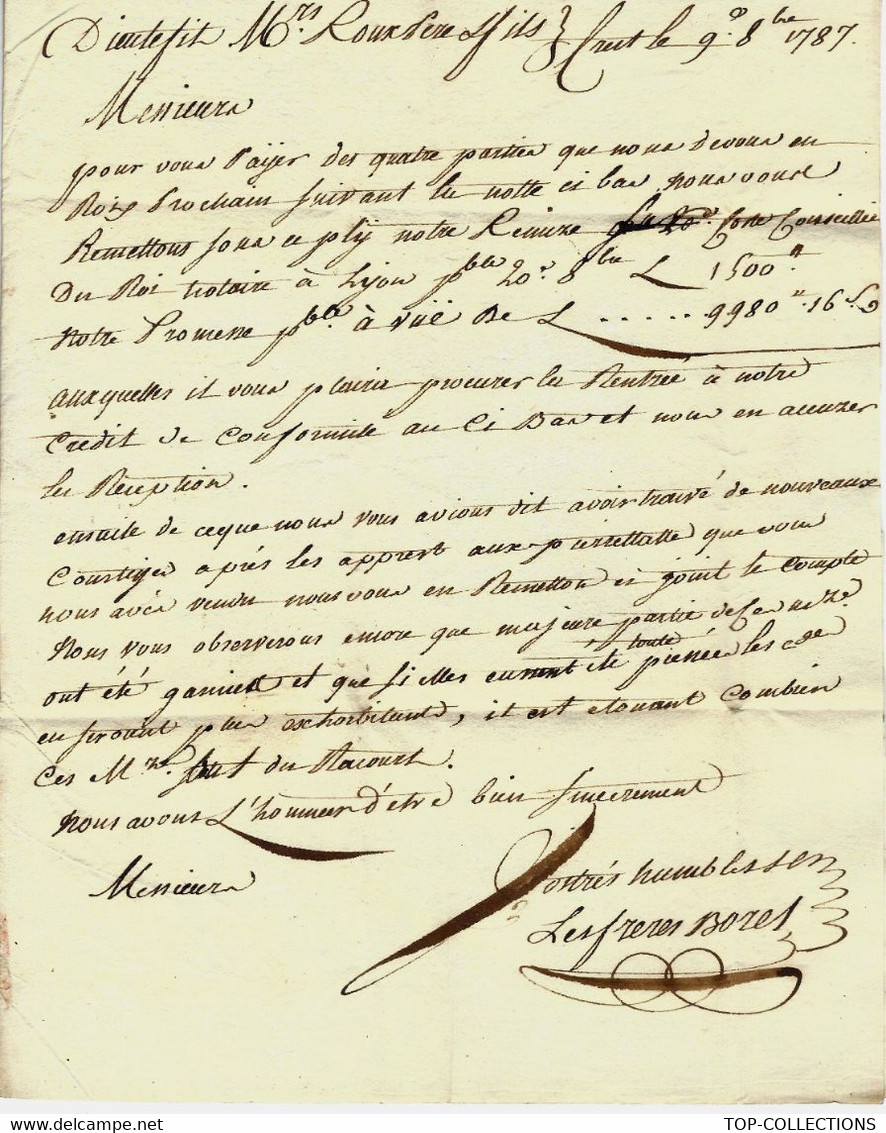 Dieulefit Mrs. Roux Pere & fils } Crest le 9e. 8bre 1787.
Messieurs
pour vous Païjer des quatre parties que nous devons en
Roix Prochain suivant la notte ci bas nous vous
Remettons sous ce plij notre Remize Coste Conseiller
Du Roi notaire à Lijon pble 20e. 8bre L 1500"
Notre Promesse pble. à vüe De L ..... 9980".16.s 9
auxquelles il vous plaira procurer la Rentrée à notre
Credit de Conformité au Ci Bas et nous en accuzer
la Réception.
ensuite de ceque nous vous avions dit avoir trouvé de nouveaux
après les apprest aux que vous
nous avés vendu nous vous en Remetton ci joint le Compte
Nous vous observerons encore que majeure partie de Ces
ont été garnies et que si elles eussent été toute les
en seroient plus exhorbitants, il est etonant Combien
Ces Mzes. ont du Racourt.
Nous avons L'honneur d'etre bien sincerement
Messieurs
Vos très humbles Ser
Les freres Borel
TOP-COLLECTIONS